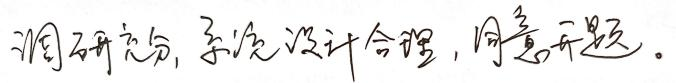 调研充分,系统设计合理,同意开题。